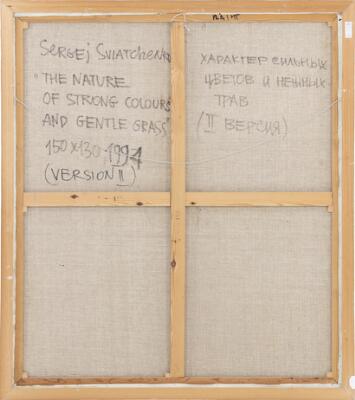 SERGEJ SVIATCHENKO
"THE NATURE
OF STRONG COLOURS
AND GENTLE GRASS"
150 x 130 1991
(VERSION II)
ХАРАКТЕР СИЛЬНЫХ
ЦВЕТОВ И НЕЖНЫХ
ТРАВ
(II ВЕРСИЯ)